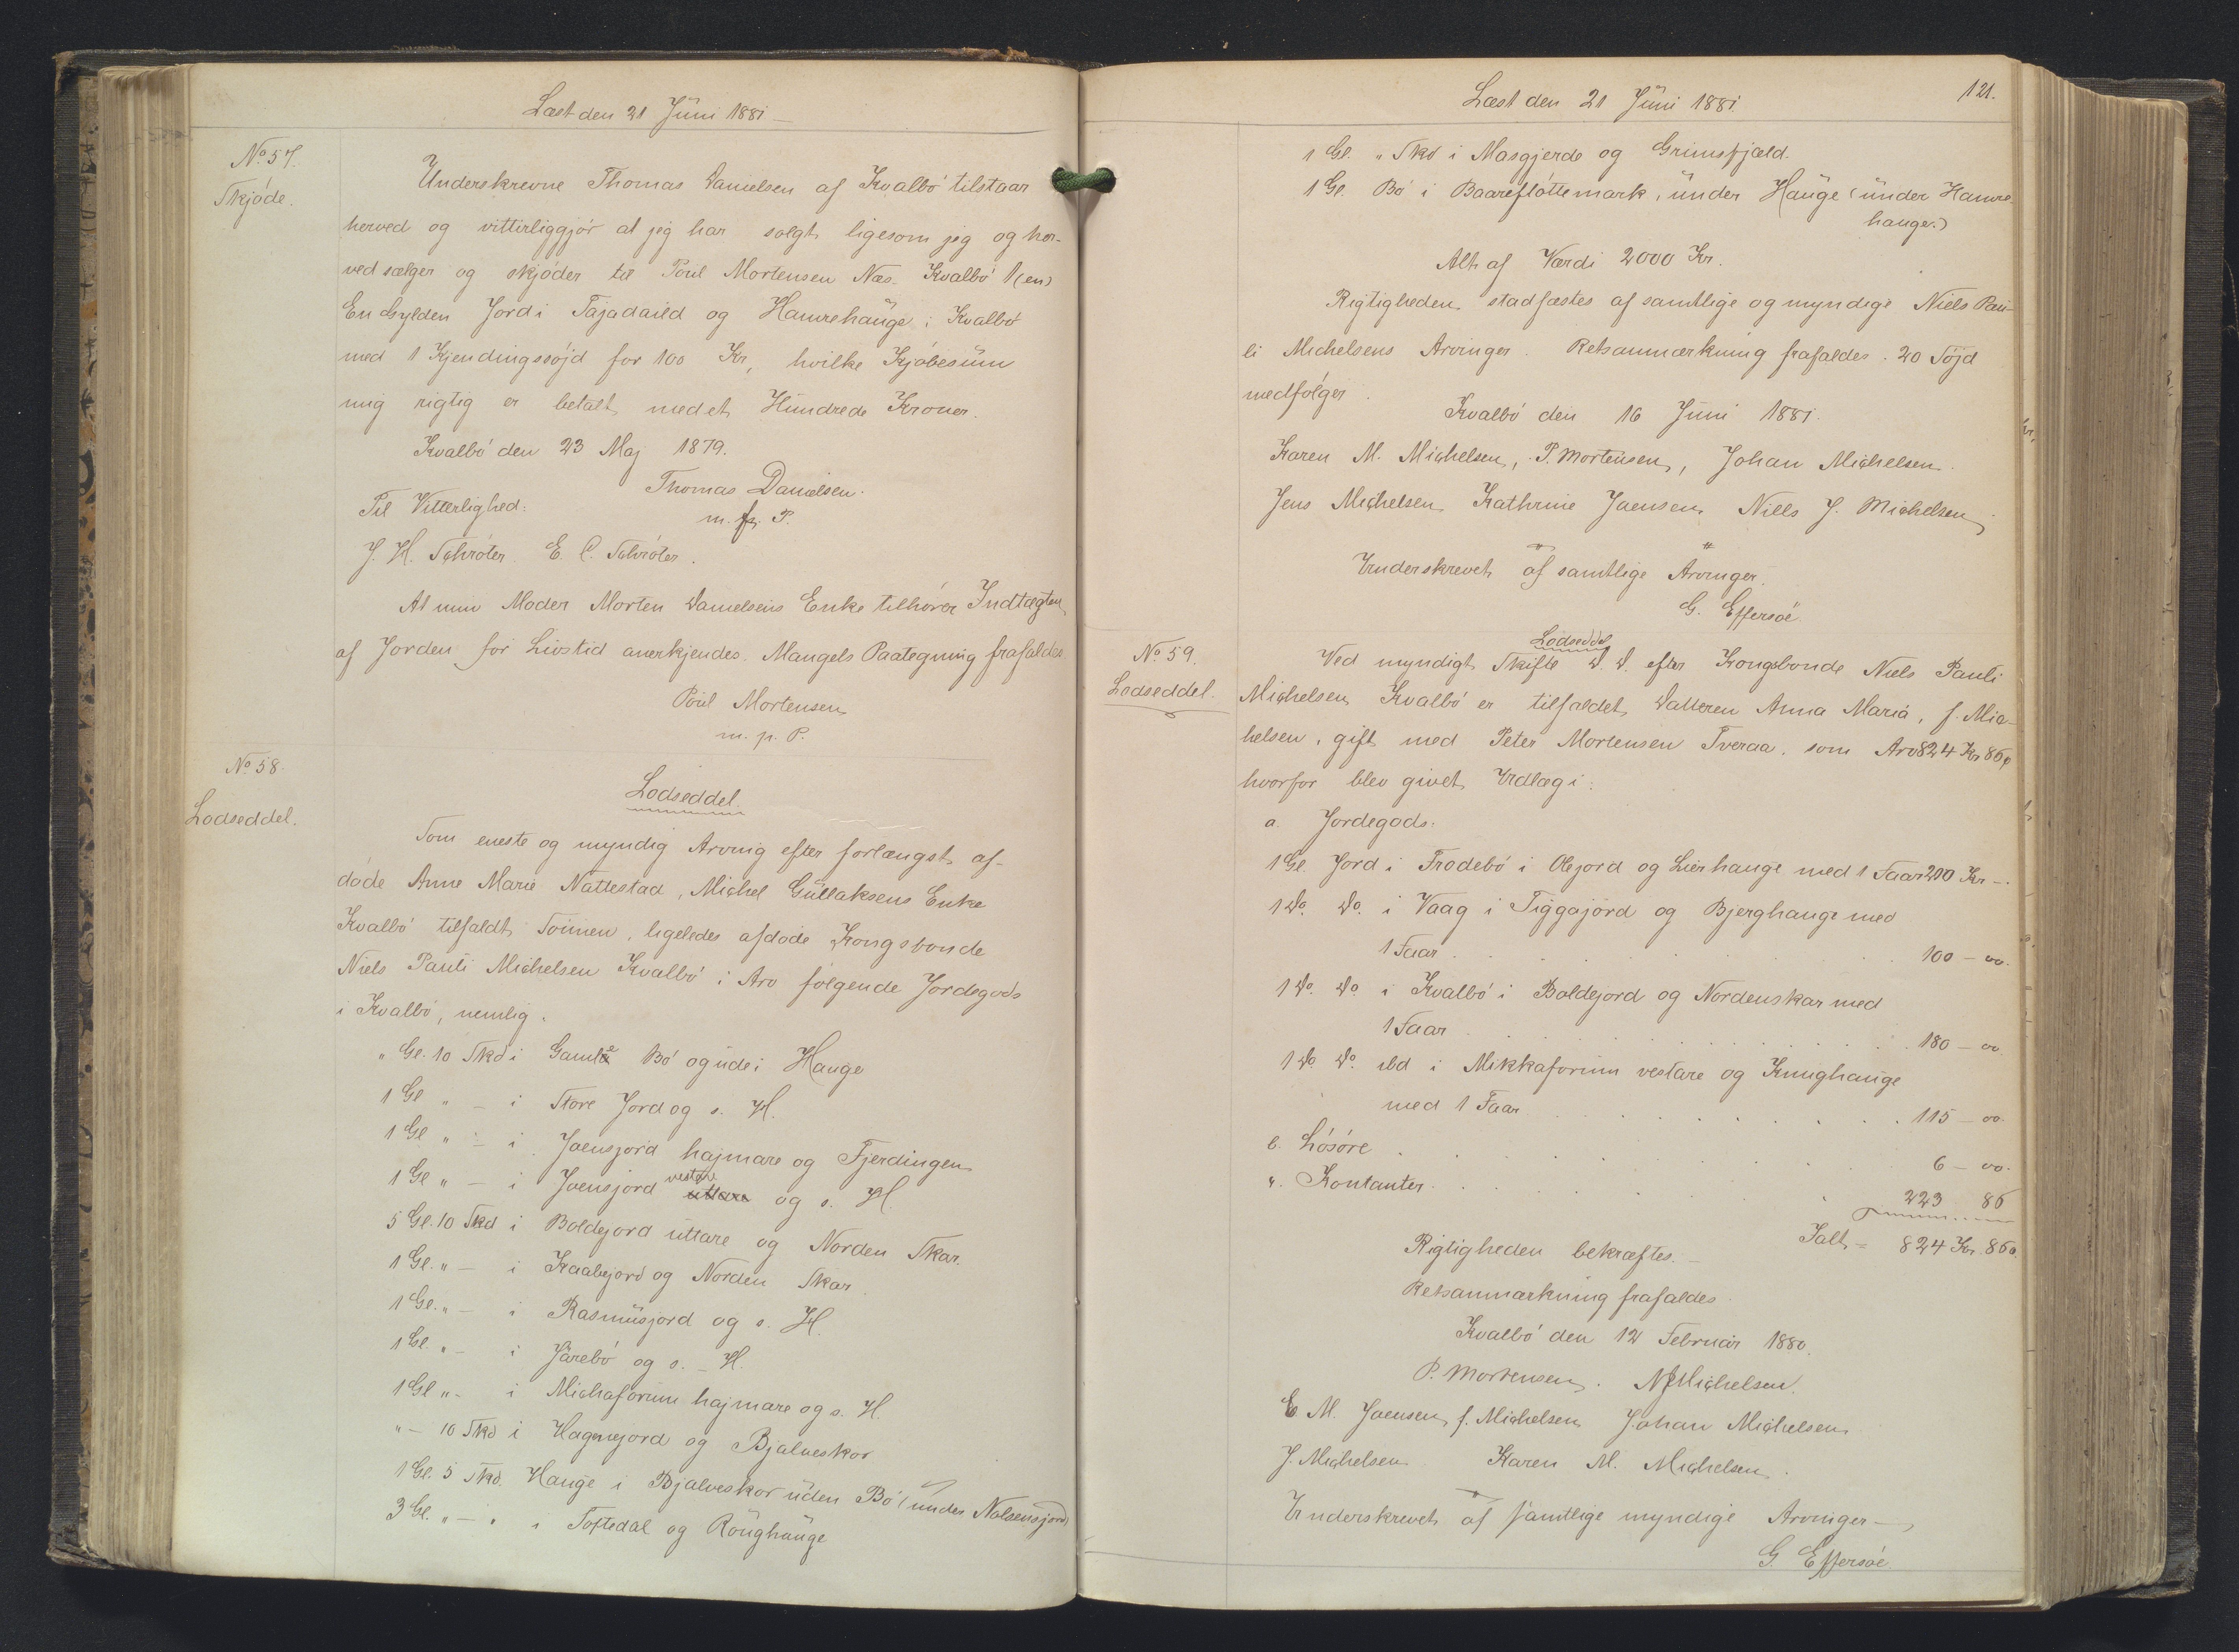 Læst den 21 Juni 1881 —
No. 57.
Skjøde.
Underskrevne Thomas Danielsen af Kvalbø tilstaar
herved og vitterliggjør at jeg har solgt ligesom jeg og her-
ved sælger og skjøder til Poul Mortensen Næs Kvalbø 1 (en)
En Gylden Jord i Tajadaild og Hamrehauge i Kvalbø
med 1 Kjendingssøjd for 100 Kr, hvilke Kjøbesum
mig rigtig er betalt med et Hundrede Kroner.
Kvalbø den 23 Maj 1879.
Thomas Danielsen.
Til Vitterlighed:
m. fr. P.
J. H. Schrøter E. C. Schrøter.
At min Moder Morten Danielsens Enke tilhører Indtægten
af Jorden for Livstid anerkjendes. Mangels Paategning frafaldes
Poul Mortensen
m. p. P.
No. 58.
Lodseddel.
Lodseddel.
Som eneste og myndig Arving efter forlængst af-
døde Anne Marie Nattestad, Michel Gullaksens Enke
Kvalbø tilfaldt Sønnen, ligeledes afdøde Kongsbonde
Niels Pauli Michelsen Kvalbø i Arv følgende Jordegods
i Kvalbø, nemlig.
" Gl. 10 Skd i Gamle Bø og ude i Hauge
1 Gl " — i Store Jord og s. H.
1 Gl " — i Joensjord hajmare og Fjerdingen
1 Gl " — i Joensjord vestare uttare og s. H.
5 Gl. 10 Skd i Boldejord uttare og Norden Skar.
1 Gl. " — i Kaabejord og Norden Skar
1 Gl. " — i Rasmusjord og s. H.
1 Gl. " — i Jarebø og s. H.
1 Gl " - i Michaforum hajmare og s. H.
" — 10 Skd i Hagnejord og Bjalveskor
1 Gl. 5 Skd. Hauge i Bjalveskor uden Bø (under Nolsensjord)
3 Gl. " — " i Toftedal og Røughauge
Læst den 21 Juni 1881.
121.
1 Gl. " Skd i Masgjerde og Grimsfjæld.
1 Gl. Bø i Baarefløttemark, under Hauge (under Hamre-
hauge.)
Alt af Værdi 2000 Kr.
Rigtigheden stadfæstes af samtlige og myndige Niels Pau-
li Michelsens Arvinger. Retsanmærkning frafaldes. 20 Søjd
medfølger.
Kvalbø den 16 Juni 1881.
Karen M. Michelsen, P. Mortensen, Johan Michelsen.
Jens Michelsen Kathrine Joensen Niels J. Michelsen
Underskrevet af samtlige Arvinger.
G. Effersøe.
No. 59.
Lodseddel.
Lodseddel
Ved myndigt Skifte D. D. efter Kongsbonde Niels Pauli
Michelsen Kvalbø er tilfaldet Datteren Anna Maria, f. Mic-
helsen, gift med Peter Mortensen Tveraa, som Arv 824 Kr 86ø
hvorfor blev givet Udlæg i:
a. Jordegods:
1 Gl. Jord i Frodebø i Olejord og Lierhauge med 1 Faar 200 Kr —.
1 Do. Do. i Vaag i Tiggajord og Bjerghauge med
1 Faar . . . . 100 — oo.
1 Do. Do. i Kvalbø i Boldejord og Nordenskar med
1 Faar . . . . 180 — oo
1 Do. Do. ibd i Mikkaforum vestare og Knughauge
med 1 Faar . . . . 115 — oo.
b. Løsøre . . . . 6 — oo.
". Kontanter . . . . 223 86
Ialt = 824 Kr. 86ø
Rigtigheden bekræftes. —
Retsanmærkning frafaldes.
Kvalbø den 12 Februar 1880.
P. Mortensen. NJMichelsen.
E. M. Joensen f. Michelsen Johan Michelsen
J. Michelsen. Karen M. Michelsen.
Underskrevet af samtlige myndige Arvinger —
G. Effersøe